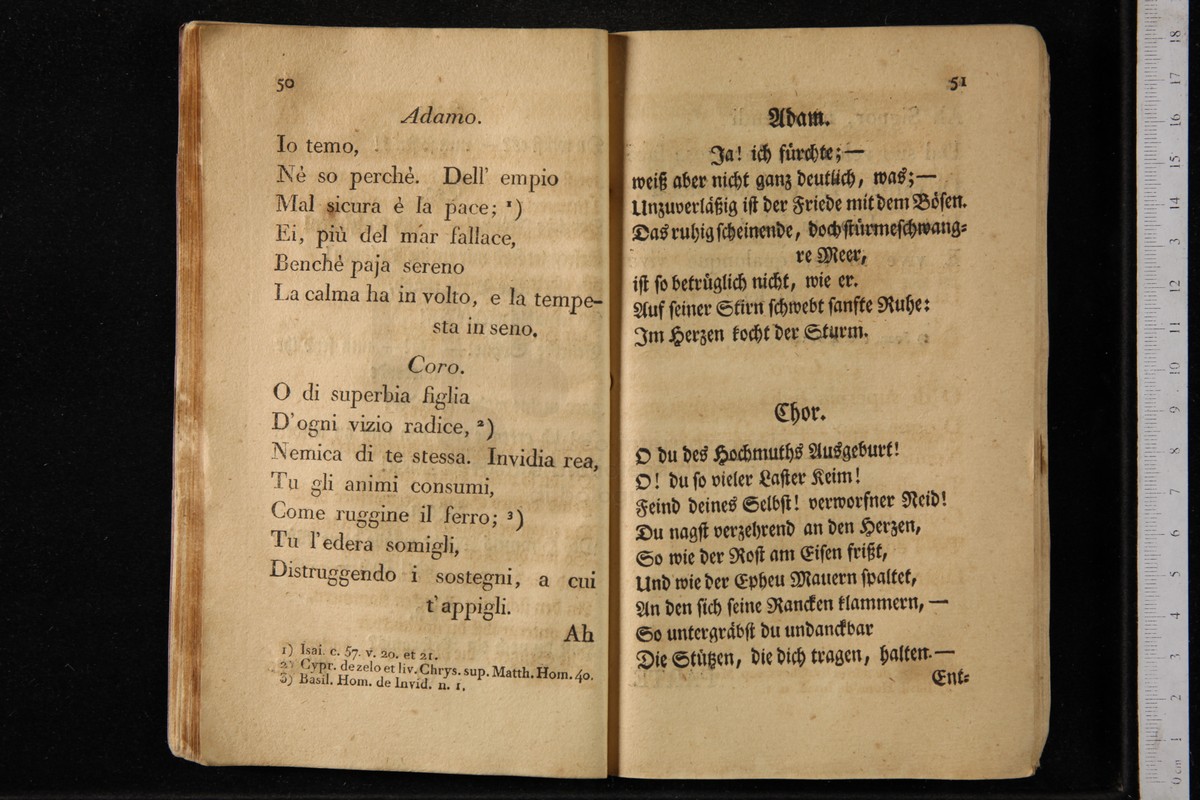 50
Adamo.
Io temo,
Nè so perchè. Dell' empio
Mal sicura è la pace; ¹)
Ei, più del mar fallace,
Benchè paja sereno
La calma ha in volto, e la tempe-
sta in seno.
Coro.
O di superbia figlia
D'ogni vizio radice, ²)
Nemica di te stessa. Invidia rea,
Tu gli animi consumi,
Come ruggine il ferro; ³)
Tu l'edera somigli,
Distruggendo i sostegni, a cui
t'appigli.
Ah
1) Isai. c. 57. v. 20. et 21.
2) Cypr. de zelo et liv. Chrys. sup. Matth. Hom. 40.
3) Basil. Hom. de Invid. n. 1.
51
Adam.
Ja! ich fürchte; —
weiß aber nicht ganz deutlich, was; —
Unzuverläßig ist der Friede mit dem Bösen.
Das ruhig scheinende, doch stürmeschwang-
re Meer,
ist so betrüglich nicht, wie er.
Auf seiner Stirn schwebt sanfte Ruhe:
Im Herzen kocht der Sturm.
Chor.
O du des Hochmuths Ausgeburt!
O! du so vieler Laster Keim!
Feind deines Selbst! verworfner Neid!
Du nagst verzehrend an den Herzen,
So wie der Rost am Eisen frißt,
Und wie der Epheu Mauern spaltet,
An den sich seine Rancken klammern, —
So untergräbst du undanckbar
Die Stützen, die dich tragen, halten. —
Ent-